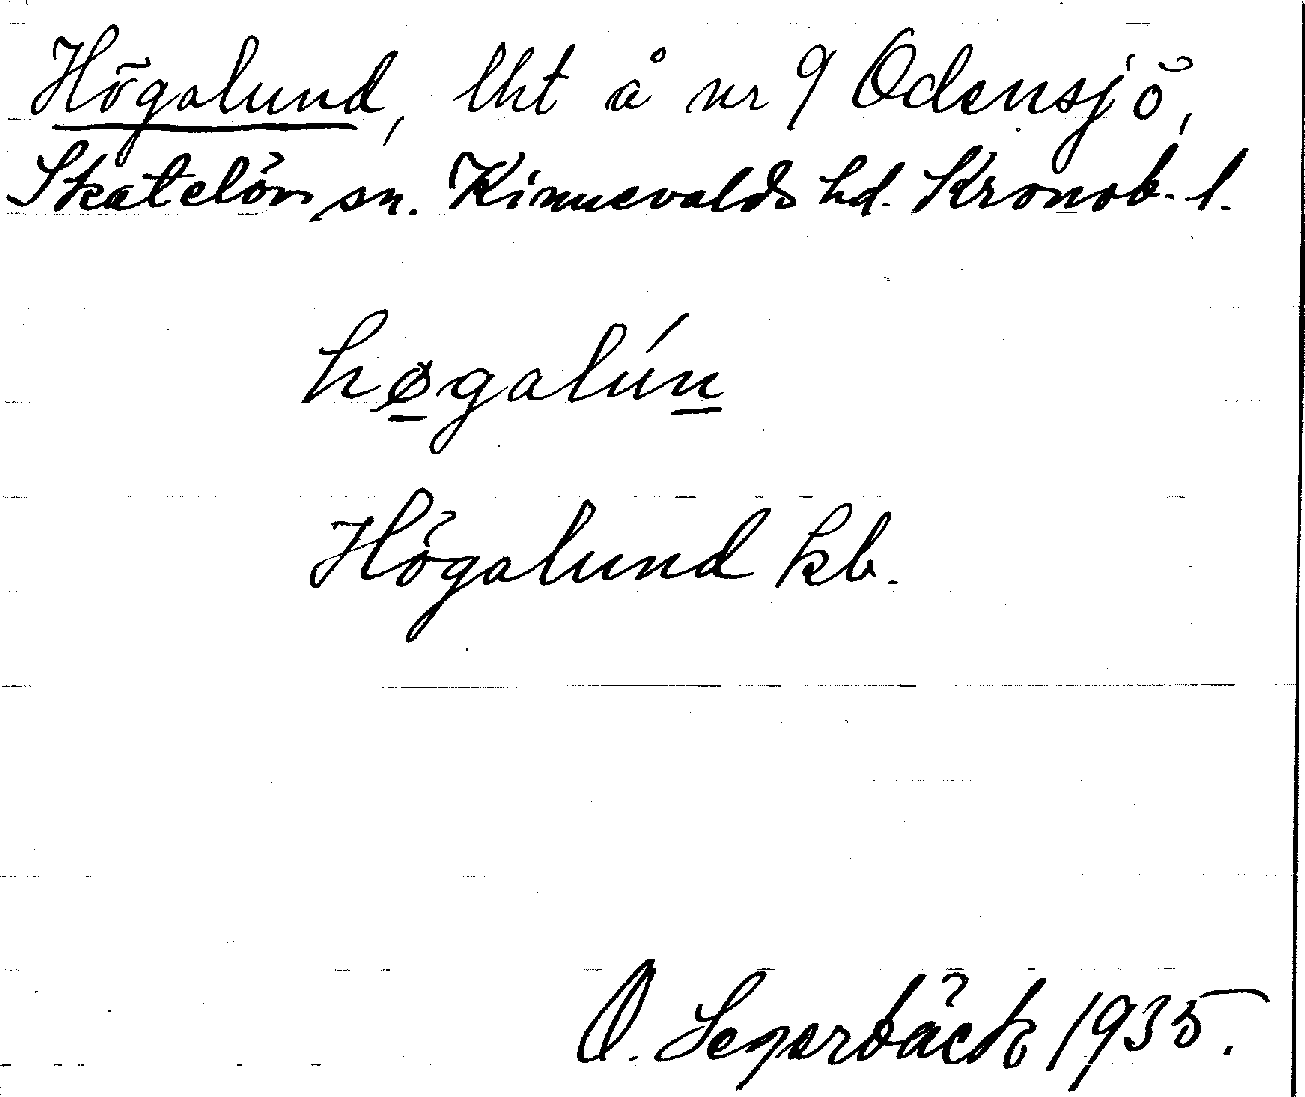 Högalund, lht å nr 9 Odensjö,
Skatelövs sn. Kinnevalds hd. Kronob. l.
hø̱galúṉ
Högalund kb.
O. Segerbäck 1935.